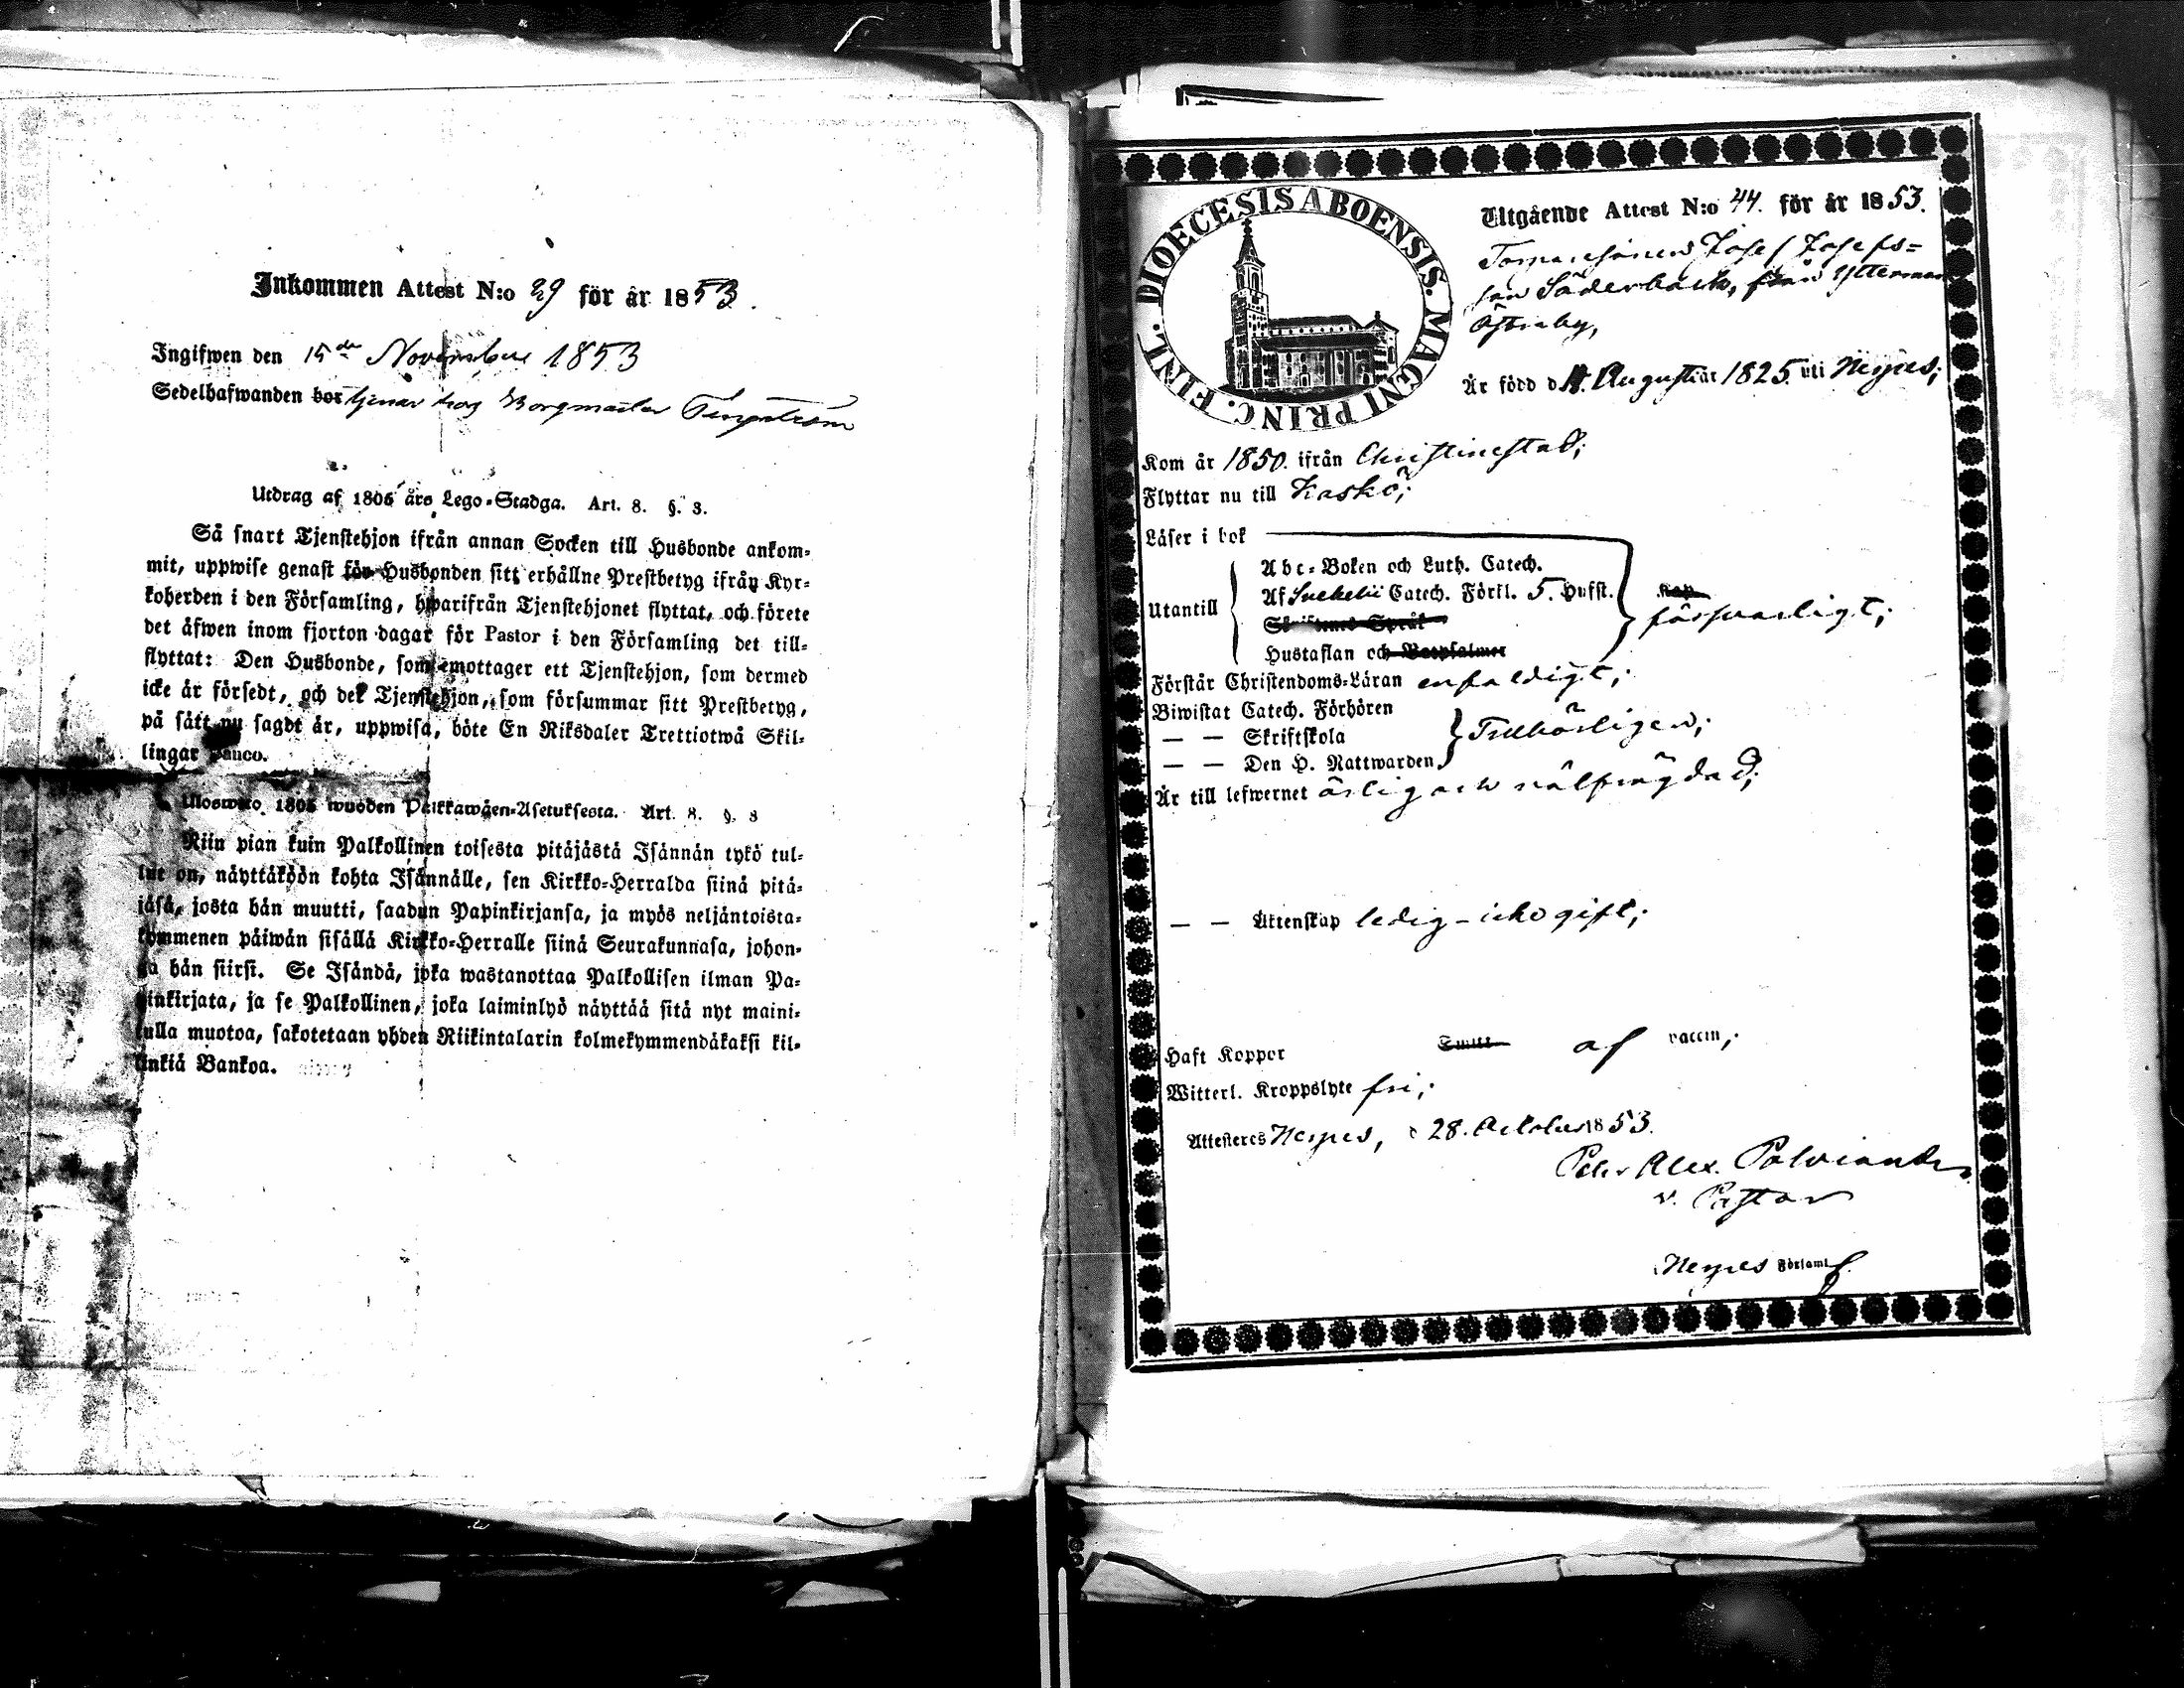 Inkommen Attest N:o 29 för år 1853.
Ingifwen den 15de November 1853
Sedelhafwanden bor tjenar hos Borgmästar Tengström
Utdrag af 1805 års Lego-Stadga. Art. 8. §. 3.
Så snart Tjenstehjon ifrån annan Socken till Husbonde ankom-
mit, uppwise genast för Husbonden sitt erhållne Prestbetyg ifrån Kyr-
koherden i den Församling, hwarifrån Tjenstehjonet flyttat, och förete
det äfwen inom fjorton dagar för Pastor i den Församling det till-
flyttat: Den Husbonde, som emottager ett Tjenstehjon, som dermed
icke är försedt, och det Tjenstehjon, som försummar sitt Prestbetyg,
på sätt nu sagdt är, uppwisa, böte En Riksdaler Trettiotwå Skil-
lingar Banco.
Ulosweto 1805 wuoden Palkkawäen-Asetuksesta. Art. 8. §. 3
Niin pian kuin Palkollinen toisesta pitäjästä Isännän tykö tul-
lut on, näyttäköön kohta Isännälle, sen Kirkko-Herralda siinä pitä-
jäsä, josta hän muutti, saadun Papinkirjansa, ja myös neljäntoista-
kymmenen päiwän sisällä Kirkko-Herralle siinä Seurakunnasa, johon-
ga hän siirsi. Se Isändä, joka wastanottaa Palkollisen ilman Pa-
pinkirjata, ja se Palkollinen, joka laiminlyö näyttää sitä nyt maini-
tulla muotoa, sakotetaan yhden Riikintalarin kolmekymmendäkaksi kil-
linkiä Bankoa.
DIOECESIS ABOENSIS. MAGNI PRINC. FINL.
Utgående Attest N:o 44. för år 1853.
Josef Josefs-
son Söderback, från Yttermark
Österby,
Är född d. Augusti år 1825. uti Nerpes;
Kom år 1850. ifrån Christinestad;
Flyttar nu till Kaskö;
Läser i bok
Utantill
Abc-Boken och Luth. Catech.
Af Svebelii Catech. Förkl. 5. Hufst.
Skriftenes Språk
Hustaflan och Botpsalmer
försvarligt;
Förstår Christendoms-Läran enfaldigt;
Biwistat Catech. Förhören
— — Skriftskola
— — Den H. Nattwarden
Tillbörligen;
Är till lefwernet ärlig och välfrägdad;
— — Äktenskap ledig - icke gift;
Haft Koppor af vaccin;
Witterl. Kroppslyte fri;
Attesteres Nerpes, d 28. October 1853.
Petr Alex. Polviander
v. Pastor
i Nerpes Församl.